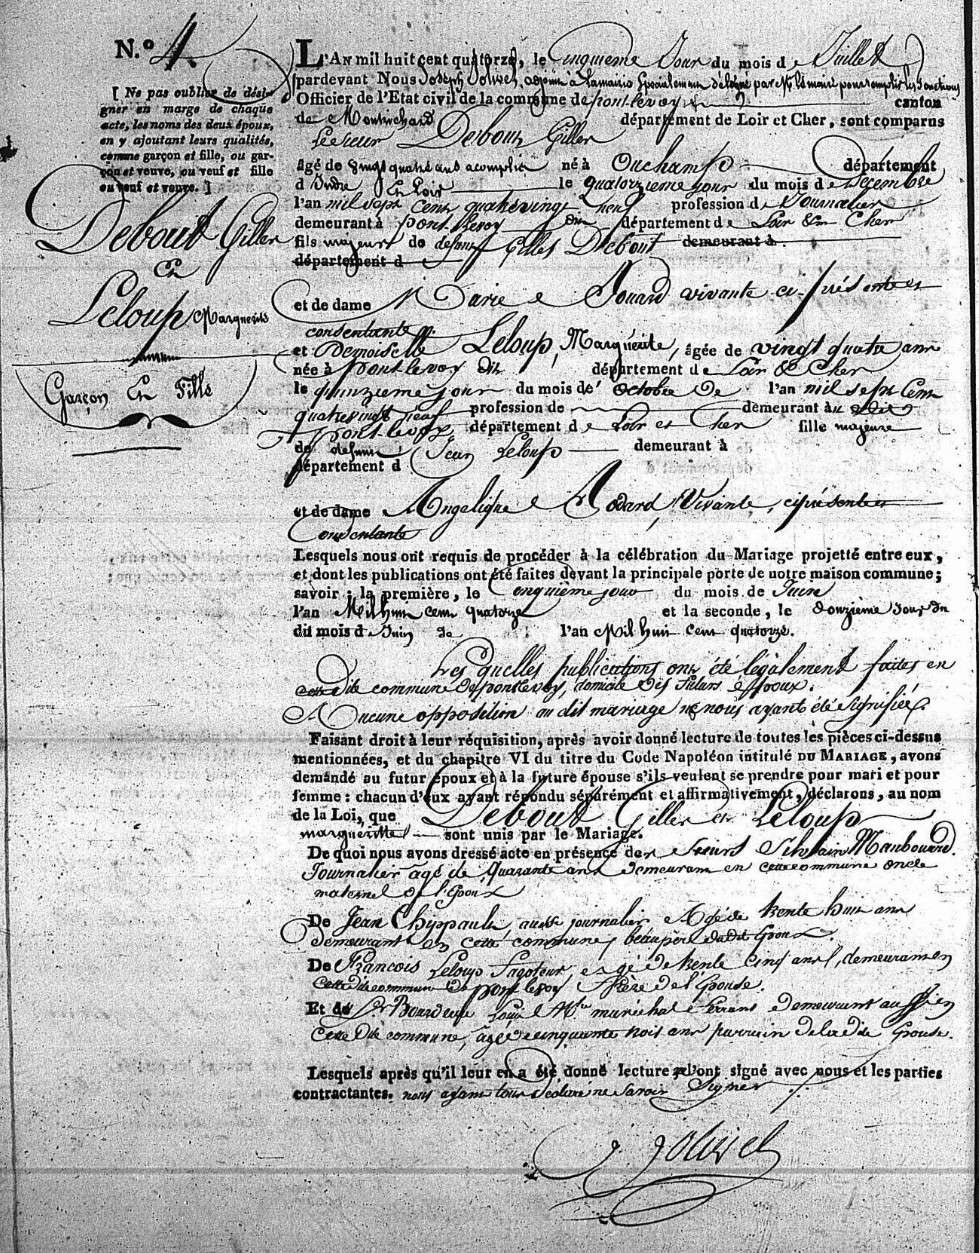 N.º 4.
[ Ne pas oublier de dési-
gner en marge de chaque
acte, les noms des deux époux,
en y ajoutant leurs qualités,
comme garçon et fille, ou gar-
çon et veuve, ou veuf et fille
ou veuf et veuve. ]
Debout Giller
Et
Leloup Marguerite
Garçon Et Fille
L'An mil huit cent quatorze, le cinquieme Jour du mois de Juillet
pardevant Nous Joseph Jolivet, adjoint à la mairie par Mr le maire pour remplir les fonctions
Officier de l'Etat civil de la commune de pontlevoy canton
de Montrichard département de Loir et Cher, sont comparus
Debout Giller
âgé de vingt quatre ans acomplie né à Ouchamp département
d le quatorzieme jour du mois de Decembre
l'an mil sept cent quatrevingt neuf profession de Journalier
demeurant à pontlevoy département de Loir & Cher
fils majeur de defunt Gilles Debout demeurant à
département d
et de dame Marie Jouard vivante ci présente et
consentante
et Demoiselle Leloup, Marguerite, âgée de vingt quatre ans
née à pontlevoy département de Loir & Cher
le quinzieme jour du mois de octobre De l'an mil sept Cent
quatrevingt neuf profession de demeurant au dit
pontlevoy, département de Loir et Cher fille majeure
de defunt Jean Leloup demeurant à
département d
et de dame Angelique Vivante, ci présente et
Consentante
Lesquels nous ont requis de procéder à la célébration du Mariage projetté entre eux,
et dont les publications ont été faites devant la principale porte de notre maison commune;
savoir : la première, le Cinquième jour du mois de Juin
l'an Mil huit cent quatorze et la seconde, le douzième Jour du
dit mois de Juin de l'an Mil huit cent quatorze.
Les quelles publications ont été légalement faites en
cette dite commune de pontlevoy, domicile des futurs époux.
Aucune opposition au dit mariage ne nous ayant été signifiée
Faisant droit à leur réquisition, après avoir donné lecture de toutes les pièces ci-dessus
mentionnées, et du chapitre VI du titre du Code Napoléon intitulé DU MARIAGE, avons
demandé au futur époux et à la future épouse s'ils veulent se prendre pour mari et pour
femme : chacun d'eux ayant répondu séparément et affirmativement, déclarons, au nom
de la Loi, que Debout Giller et Leloup
margueritte sont unis par le Mariage.
De quoi nous avons dressé acte en présence de Silvain Maubouard
Journalier agé de Quarante ans demeurant en cette commune oncle
maternel de l'Epoux
De Jean aussi journalier Agé de trente huit ans
demeurant en cette commune, beaupère dudit Epoux.
De François Leloup Sagoteur, agé de trente cinq ans, demeurant en
cette dite commune de pontlevoy Frère de l'Epouse.
Et de maréchal ferrant demeurant aussi en
Cette dite commune, âgé de cinquante trois ans parrain de la dite Epouse.
Lesquels après qu'il leur en a été donné lecture l'ont signé avec nous et les parties
contractantes. nous ayant tous déclaré ne savoir Signer
Jolivet